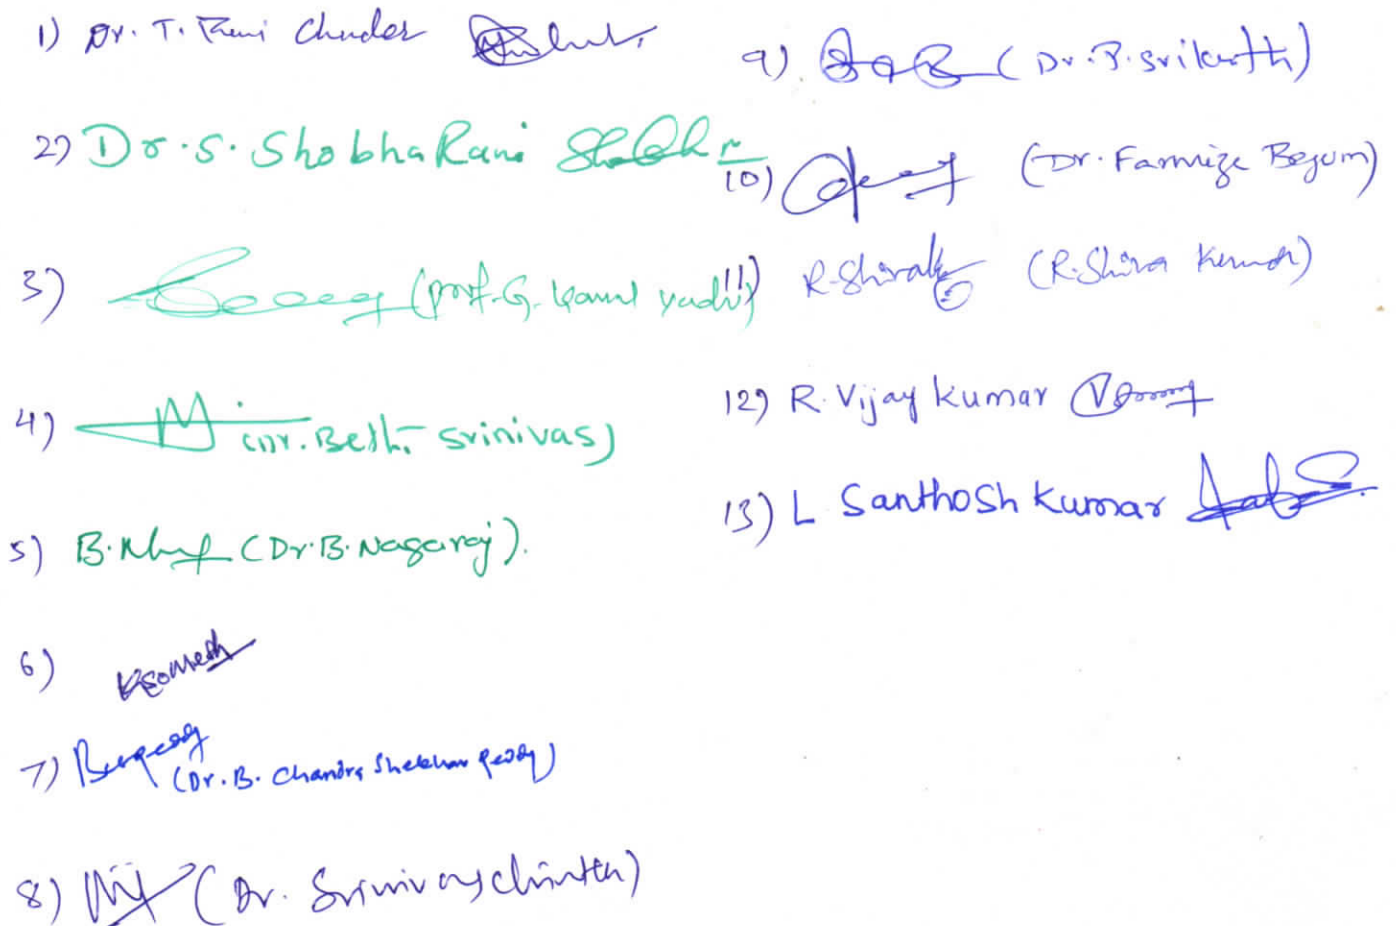 1) Dr. T. Ravi Chander
2) Dr. S. Shobha Rani
3) (Prof. G. Kamal yadav)
4) (Dr. Bethi Srinivas)
5) (Dr. B. Nagaraj).
6)
7) (Dr. B. Chandra Shekhar Reddy)
8) (Dr. Srinivas chintha)
9) (Dr. P. Srikanth)
10) (Dr. Farmize Begum)
11) (R. Shiva Kumar)
12) R. Vijay Kumar
13) L Santhosh Kumar